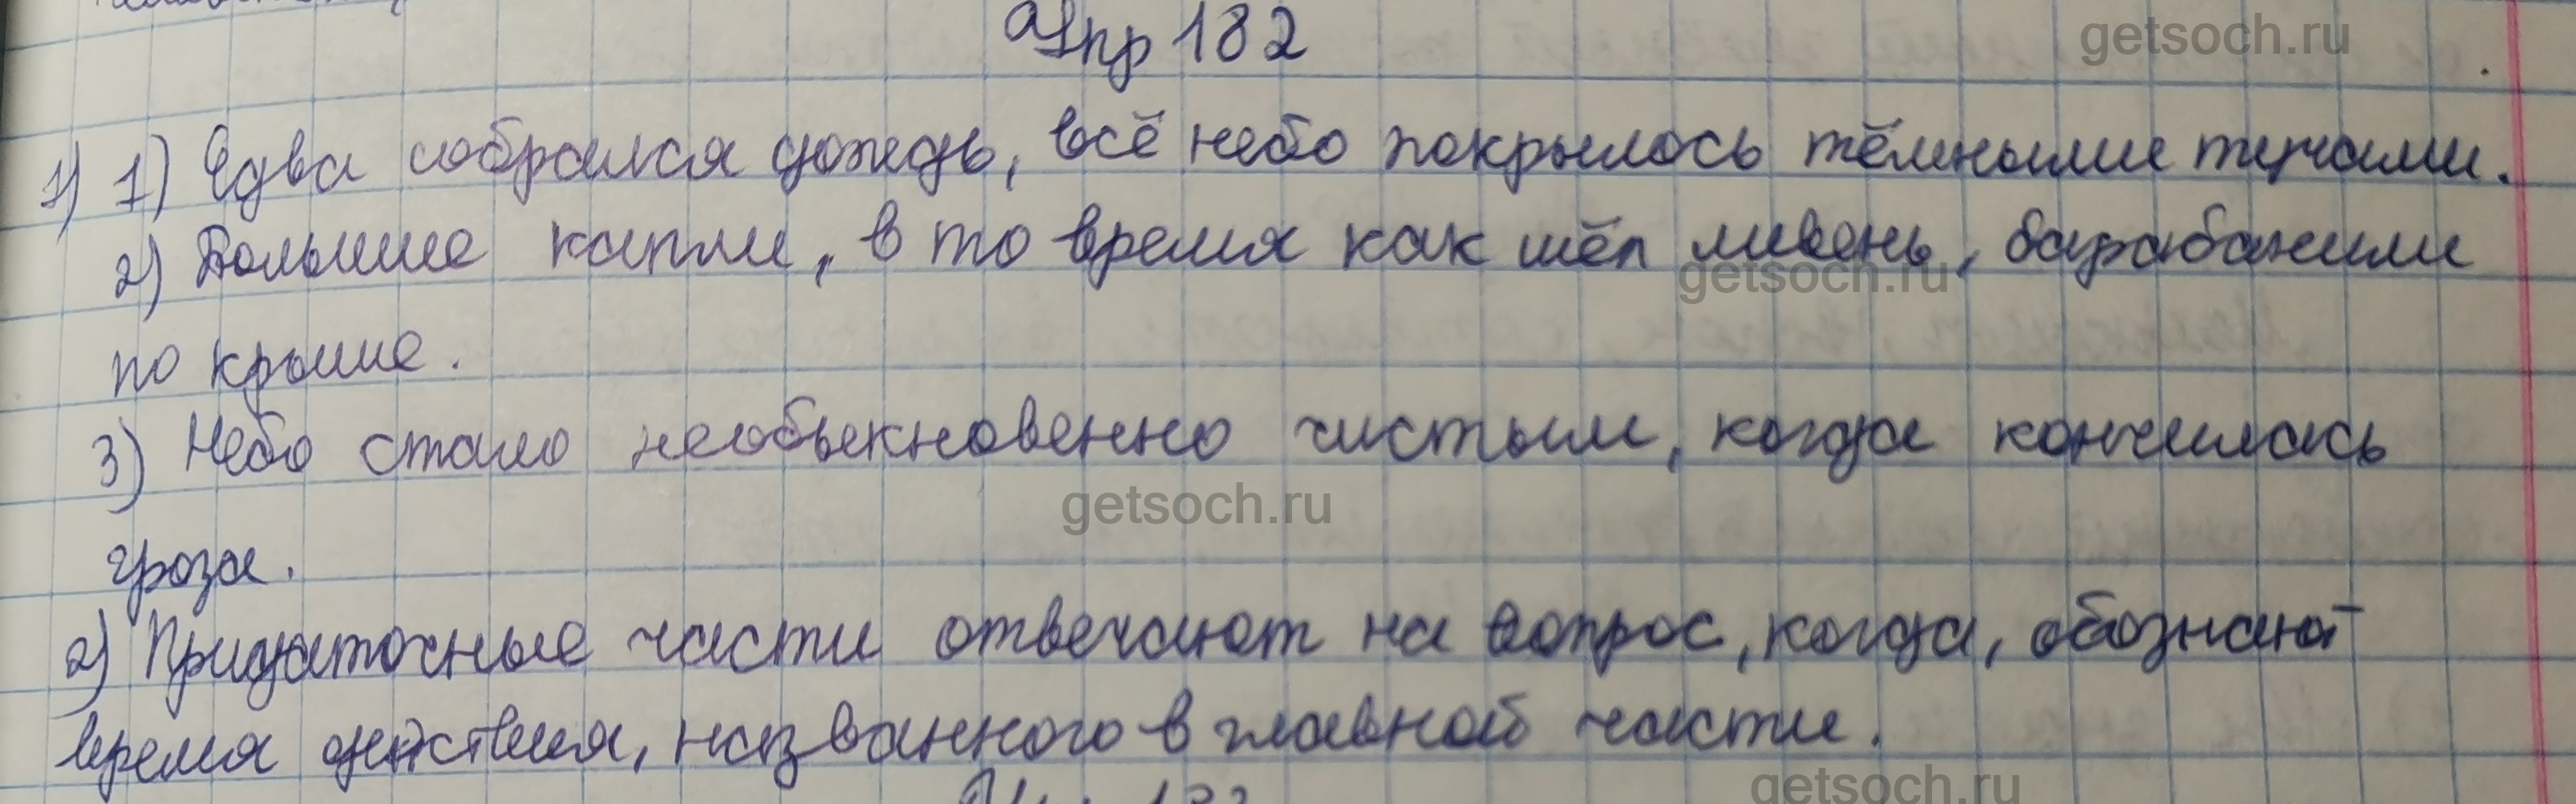 Упр 182
getsoch.ru
1) 1) Едва собрался дождь, всё небо покрылось тёмными тучами.
2) Большие капли, в то время как шёл ливень, барабанили
getsoch.ru
по крыше.
3) Небо стало необыкновенно чистым, когда кончилась
getsoch.ru
гроза.
2) Придаточные части отвечают на вопрос, когда, обознают
время действия, названного в главной части.
getsoch.ru